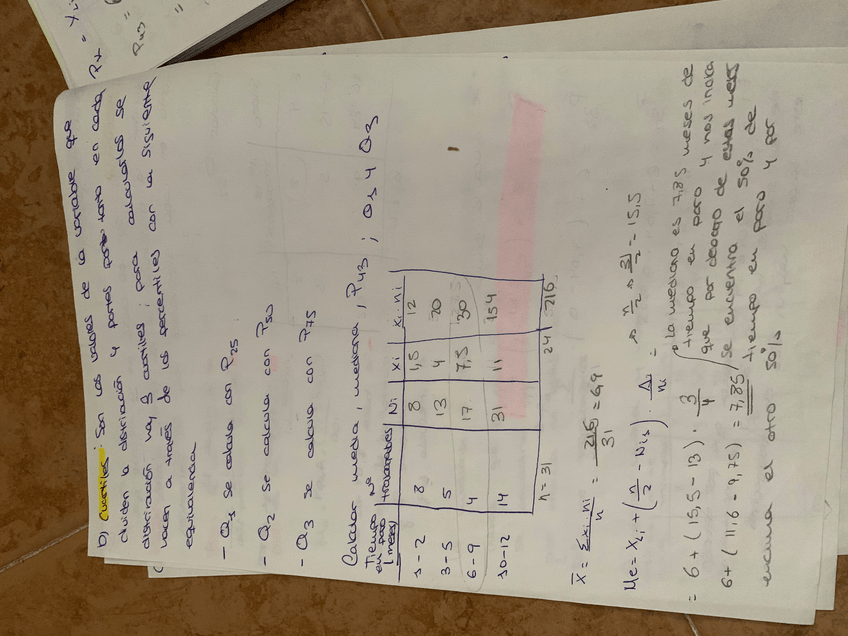 b) Cuartiles: Son los valores de la variable que
dividen la distribución 4 partes por tanto en cada
distribución hay 3 cuartiles; para calcularlos se
hacen a través de los percentiles con la siguiente
equivalencia
- Q1 se calcula con P25
- Q2 se calcula con P50
- Q3 se calcula con P75
Calcular media, mediana, P43; Q1 y Q3
Tiempo en paro (meses) nº trabajadores Ni xi xi·ni
1-2 8 8 1,5 12
3-5 5 13 4 20
6-9 4 17 7,5 30
10-12 14 31 11 154
n=31 24 216
x̄ = Σxi·ni / n = 216 / 31 = 6,9
Me = xi + (n/2 - Ni-1) · Δi / ni = → n/2 → 31/2 = 15,5
= 6 + (15,5 - 13) · 3/4
6 + (11,6 - 9,75) = 7,85
la mediana es 7,85 meses de
tiempo en paro y nos indica
que por debajo de estos meses
se encuentra el 50% de
tiempo en paro y por
encima el otro 50%
Px = Xi
P43
=